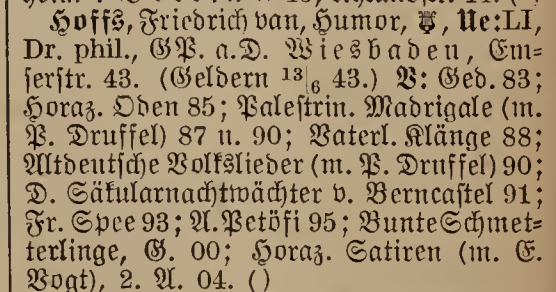 Hoffs, Friedrich van, Humor, Ue:LI,
Dr. phil., GP. a.D. Wiesbaden, Em=
serstr. 43. (Geldern 13|6 43.) V: Ged. 83;
Horaz. Oden 85; Palestrin. Madrigale (m.
P. Druffel) 87 u. 90; Vaterl. Klänge 88;
Altdeutsche Volkslieder (m. P. Druffel) 90;
D. Säkularnachtwächter v. Berncastel 91;
Fr. Spee 93; A. Petöfi 95; Bunte Schmet=
terlinge, G. 00; Horaz. Satiren (m. E.
Vogt), 2. A. 04. ()